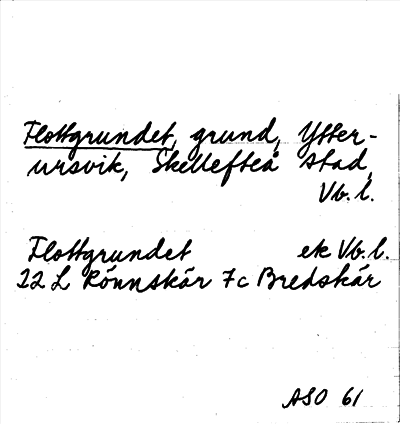 Flottgrundet, grund, Ytter-
ursvik, Skellefteå stad,
Vb. l.
Flottgrundet ek Vb. l.
22 L Rönnskär 7c Bredskär
ASO 61